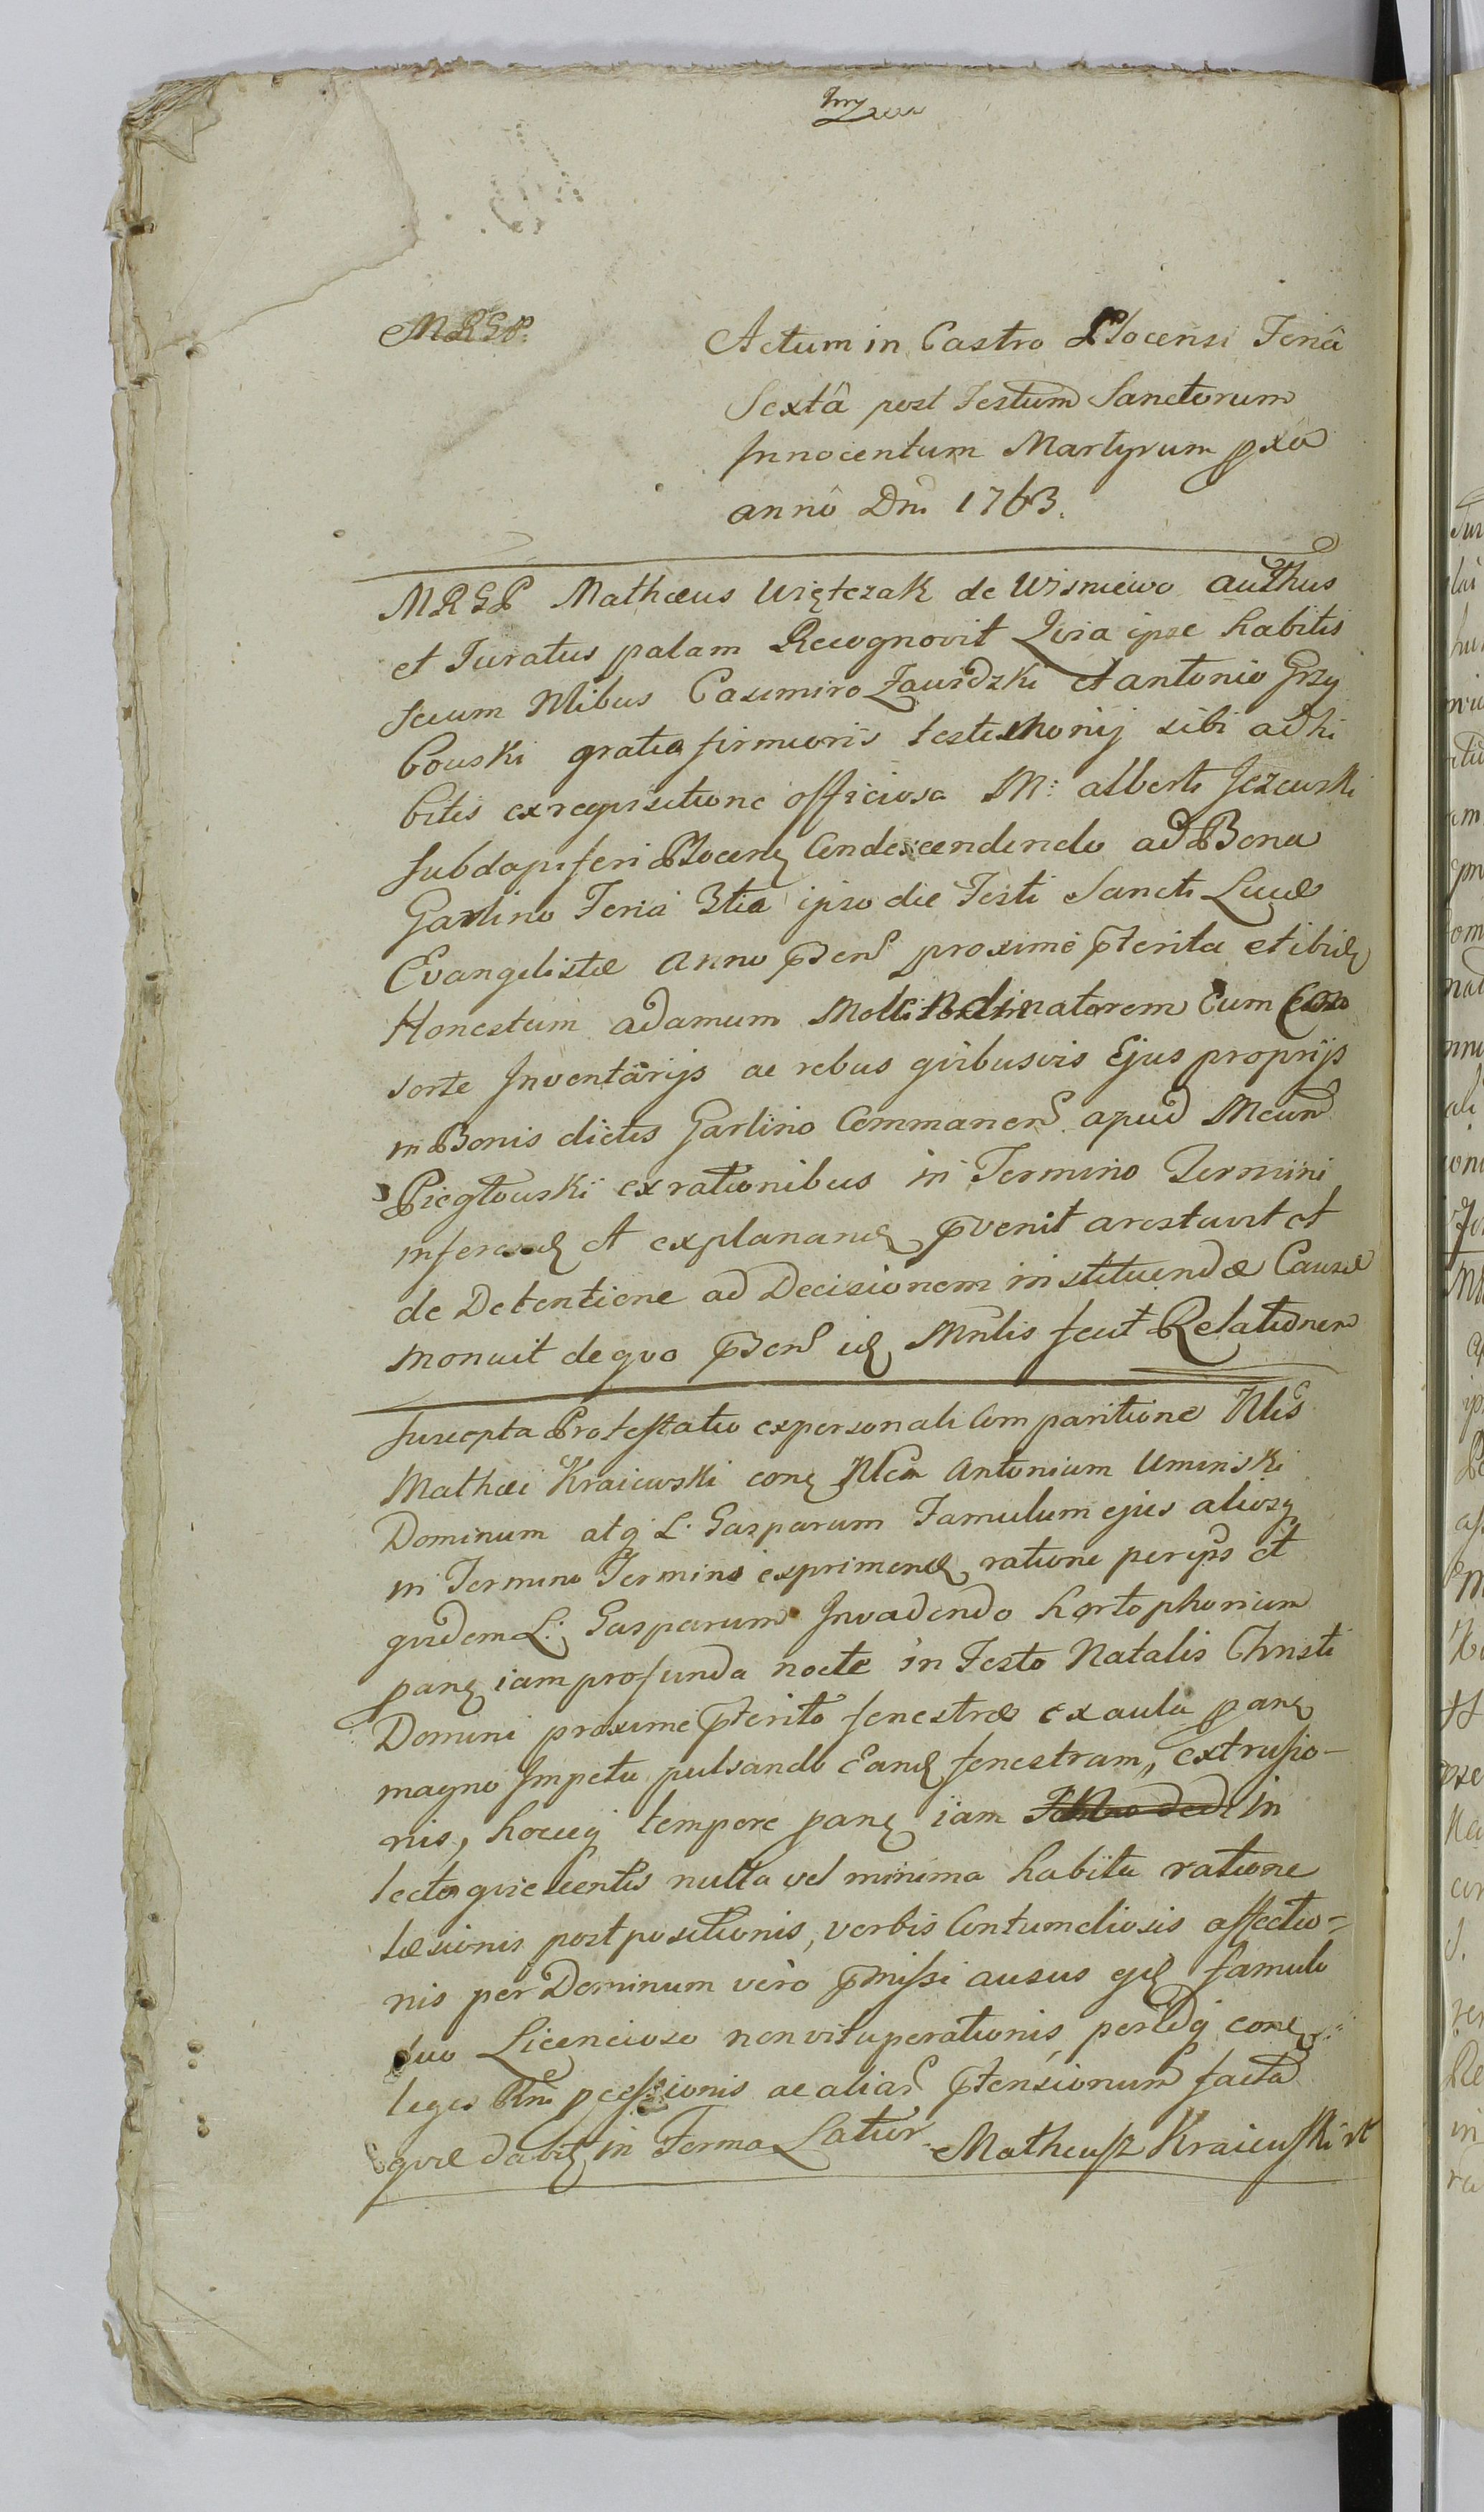 MRGP.
Actum in Castro Plocensi Feriâ
Sextâ post Festum Sanctorum
Innocentum Martyrum pxa
annô Dni 1763.
MRGP Mathæus Więtczak de Wisniewo authus
et Juratus palam Recognovit Qvia ipse habitis
secum Nlibus Casimiro Zawidzki et antonio Grzy
bowski gratia firmioris testimonij sibi adhi
bitis ex reqvisitione officiosa M: alberti Jezewski
Subdapiferi Plocen Condescendendo ad Bona
Garlino Feria 3tia ipso die Festi Sancti Lucæ
Evangelistæ Anno psen proxime pterita et ibid
Honestum adamum Molendinatorem cum Con
sorte Inventarijs ac rebus qvibusvis Ejus proprijs
in Bonis dictis Garlino Commanen apud Mcum
Piegłowski ex rationibus in Termino Termini
inferend et explanand pvenit arestavit et
de Detentione ad Decisionem instituendæ Causæ
monuit de qvo psen id Mnlis fecit Relationem
Suscepta Protestatio ex personali Comparitione Nlis
Mathæi Kraiewski con Nlem Antonium Uminski
Dominum atq L. Gasparum Famulum ejus aliosq
in Termino Termini exprimend ratione per eps et
qvidem L: Gasparum Invadendo hortophorium
pan iam profunda nocte in Festo Natalis Christi
Domini proxime pterito fenestræ ex aula pan
magno Impetu pulsando Eand fenestram, extrusio-
nis, hocceq tempore pan iam in
lecto qviescentis nulla vel minima habita ratione
læsionis postpositionis, verbis Contumeliosis affectio-
nis per Dominum vero pmissi ausus ejd famulo
suo Licencioso non vituperationis, per idq con
leges Rni pcessionis ac aliar ptensionum facta
qvæ dabit in Forma Latior Matheusz Kraiewski